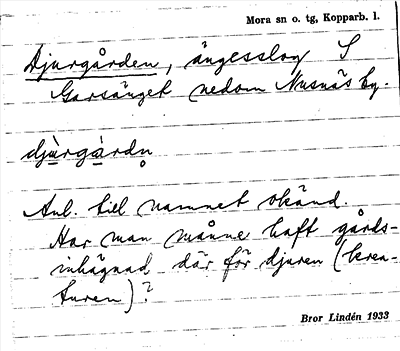 Mora sn o. tg, Kopparb. l.
Djurgården, ängesslog S
Garsänget nedom Nusnäs by.
djùrgàrdn̥
Anl. till namnet okänd.
Har man månne haft gårds-
inhägnad där för djuren (krea-
turen)?
Bror Lindén 1933